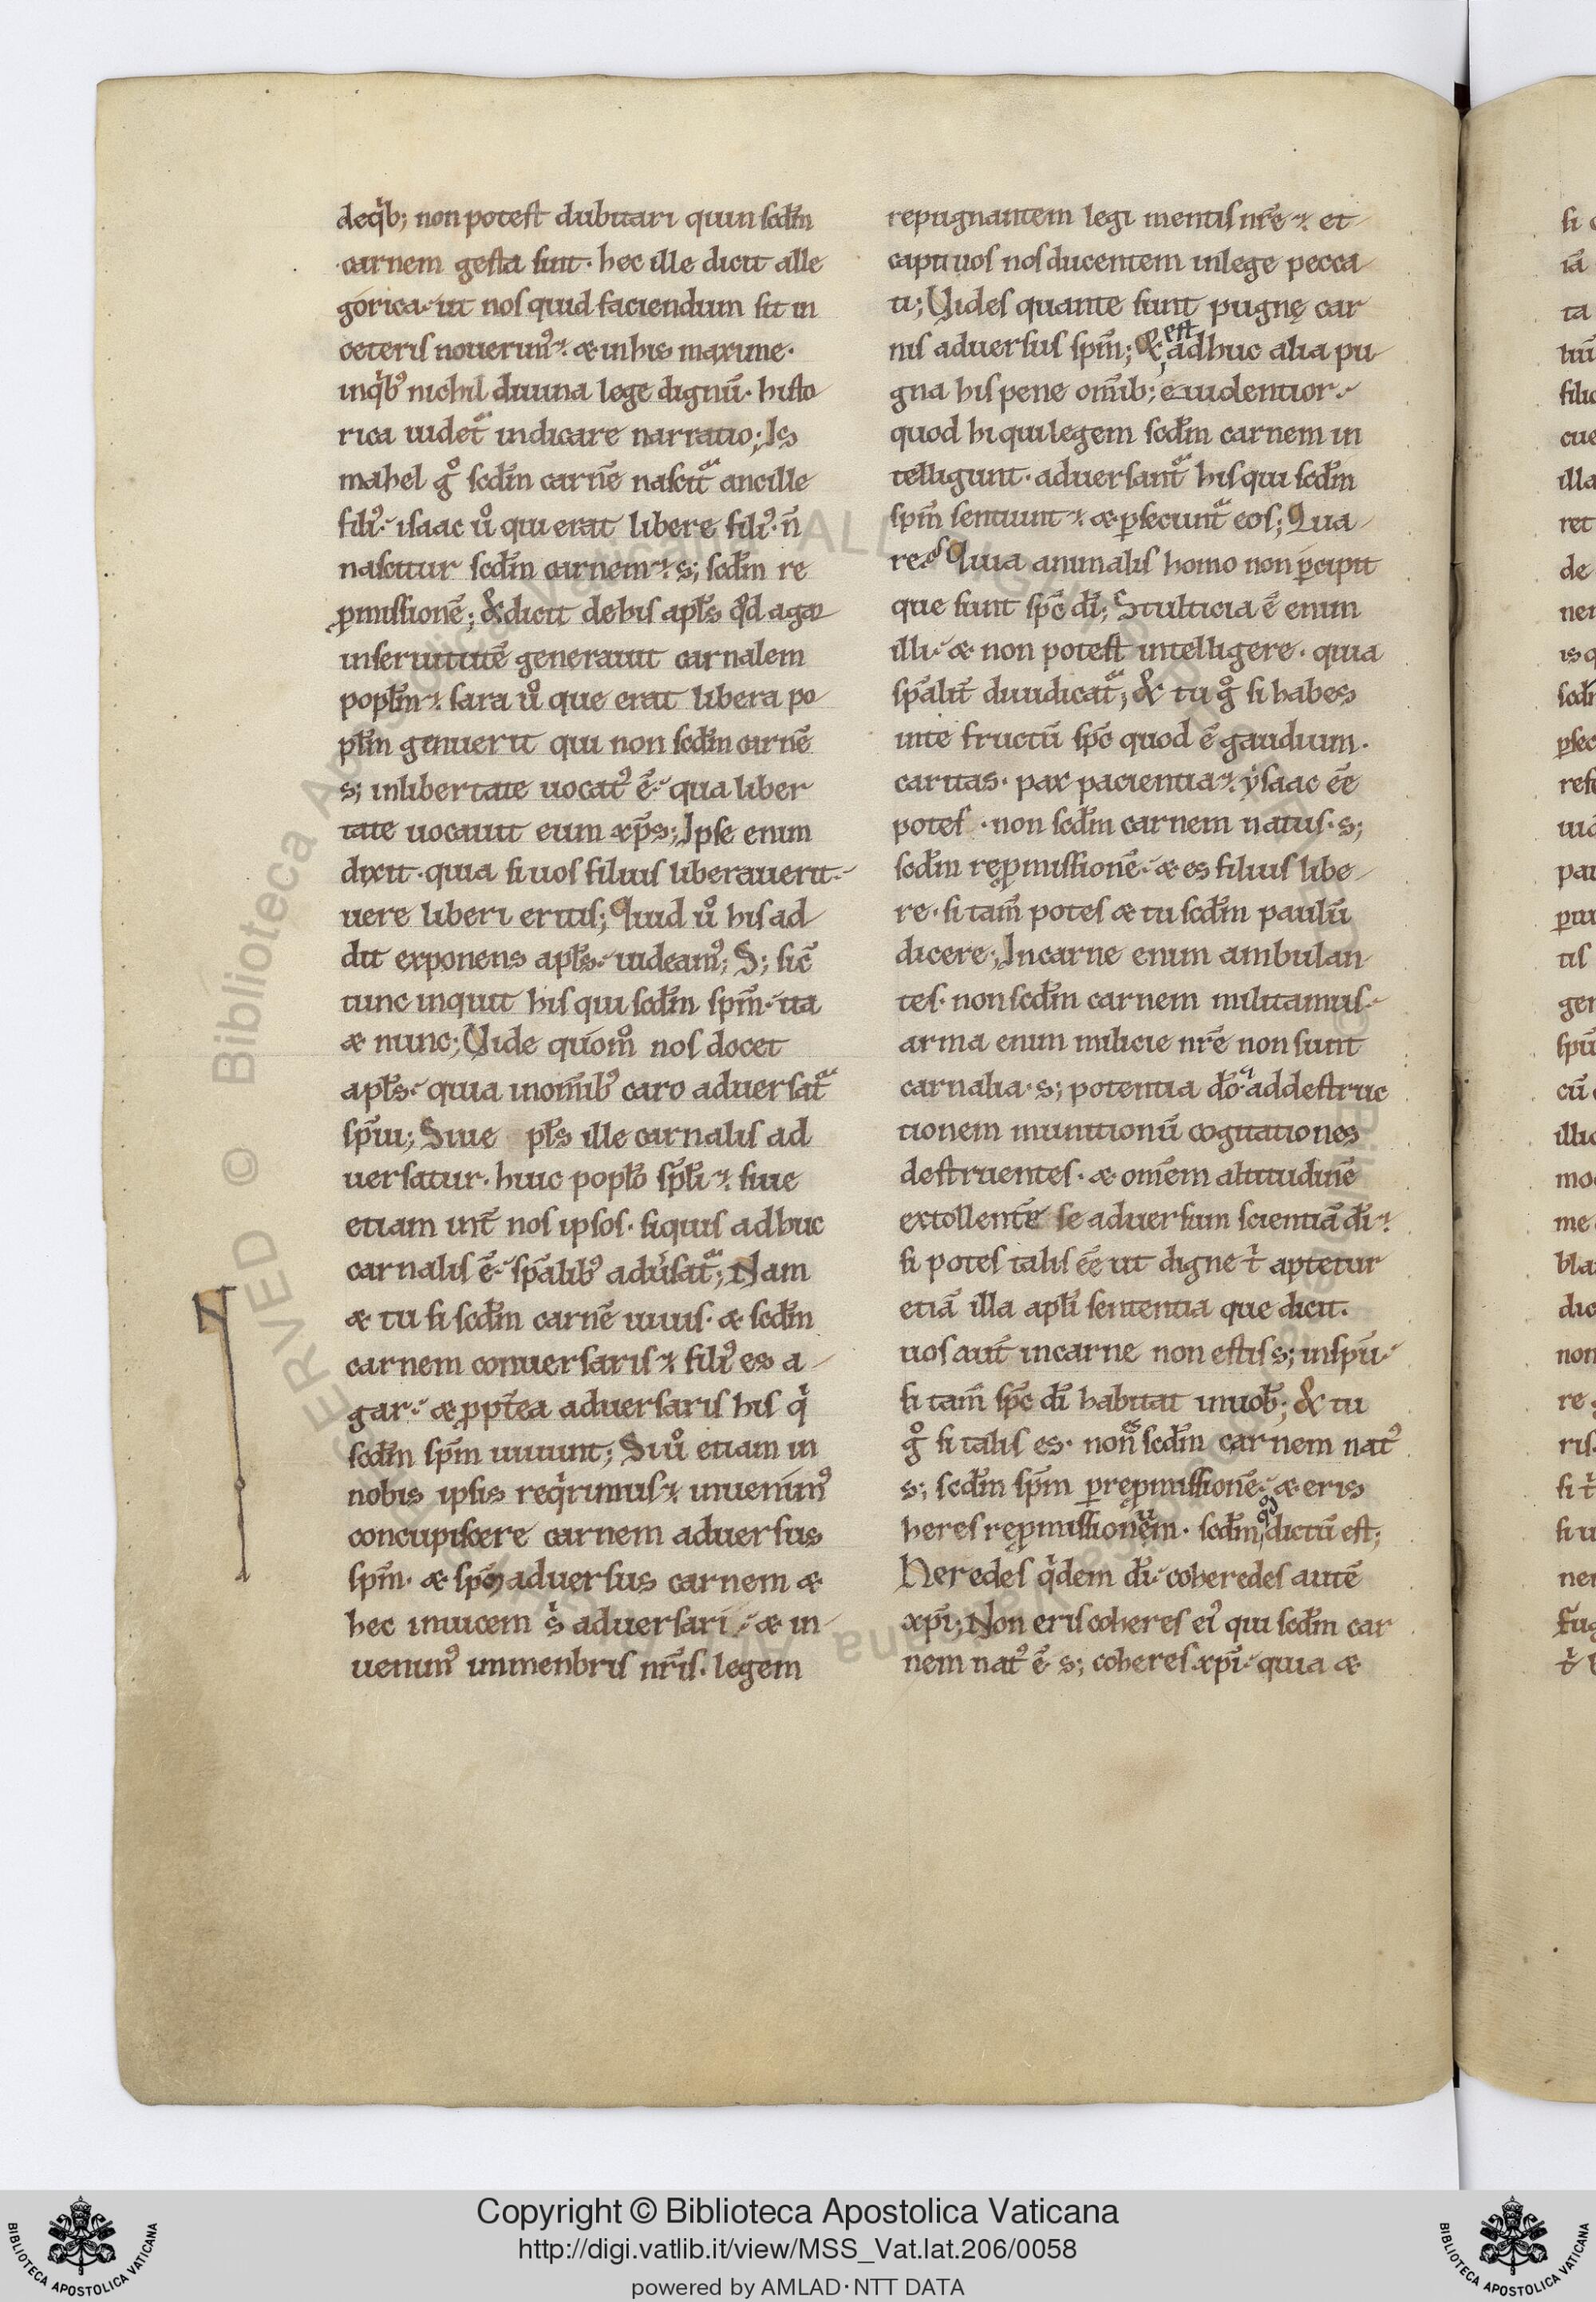 deqͥb; non potest dubitari quin scd̄m
carnem gesta sunt· hec ille dicit alle
gorica· ut nos quid faciendum sit in
ceteris nouerim᷒· & in his maxime·
inqͥb᷒ nichil diuina lege dignū· histo
rica uidet᷑ indicare narratio; Is
mahel gͦ scd̄m carnē nascit᷑ ancille
fili᷒· isaac uͦ qui erat libere fili᷒· n̄
nascitur scd̄m carnem· s; scd̄m re
ꝓmissionē; & dicit de his apl̄s qd̄ agar
inseruitutē generauit carnalem
popl̄m· sara uͦ que erat libera po
pl̄m genuerit qui non scd̄m carnē
s; inlibertate uocat᷒ ē· qua liber
tate uocauit eum xp̄s; Ipse enim
dixit· quia si uos filius liberauerit·
uere liberi eritis; Quid uͦ his ad
dit exponens apl̄s· uideam᷒; S; sic̄
tunc inquit his qui scd̄m sp̄m· ita
& nunc; Uide quom̊ nos docet
apl̄s· quia inom̄ib᷒ caro aduersat᷑
sp̄iu; Siue pl̄s ille carnalis ad
uersatur· huic popl̄o sp̄li· siue
etiam int̄ nos ipsos· siquis adhuc
carnalis ē· sp̄alib᷒ adūsat᷑; Nam
& tu si scd̄m carnē uiuis· & scd̄m
carnem conuersaris· fili᷒ es a
gar· & ꝓpt̄ea aduersaris his qͥ
scd̄m sp̄m uiuunt; Siuͦ etiam in
nobis ipsis reqͥrimus· inuenim᷒
concupiscere carnem aduersus
sp̄m· & sp̄m aduersus carnem &
hec inuicem sͥ aduersari· & in
uenim᷒ inmenbris nr̄is· legem
repugnantem legi mentis nr̄e· et
captiuos nos ducentem inlege pecca
ti; Uides quante sunt pugnę car
nis aduersus sp̄m; & est adhuc alia pu
gna his pene om̄ib; euidentior·
quod hi qui legem scd̄m carnem in
telligunt· aduersant᷑ his qui scd̄m
sp̄m sentiunt· & ꝑsecunt᷑ eos; Qua
re Quia animalis homo non ꝑcipit
que sunt sp̄c dī; Stulticia ē enim
illi· & non potest intelligere· quia
sp̄alit̄ diiudicat᷑; & tu gͦ si habes
inte fructū sp̄c quod ē gaudium·
caritas· pax pacientia· ẏsaac ēē
potes· non scd̄m carnem natus· s;
scd̄m reꝓmissionē· & es filius libe
re· si tam̄ potes & tu scd̄m paulū
dicere; Incarne enim ambulan
tes· non scd̄m carnem militamus·
arma enim milicie nr̄e non sunt
carnalia· s; potentia dō· addestruc
tionem munitionū cogitationes
destruentes· & om̄em altitudinē
extollentē se aduersum scientiā dī·
si potes talis ēē ut digne tͥ aptetur
etiā illa apl̄i sententia que dicit·
uos aut̄ incarne non estis s; insp̄u·
si tam̄ sp̄c dī habitat inuob̄; & tu
gͦ si talis es· non scd̄m carnem nat᷒
s; scd̄m sp̄m ꝑreꝓmissionē· & eris
heres reꝓmissionem· scd̄m qd̄ dictū est;
Heredes qͥdem dī· coheredes autē
xp̄i; Non eris coheres ei᷒ qui scd̄m car
nem nat᷒ ē· s; coheres xp̄i· quia &
Copyright © Biblioteca Apostolica Vaticana
http://digi.vatlib.it/view/MSS_Vat.lat.206/0058
powered by AMLAD·NTT DATA